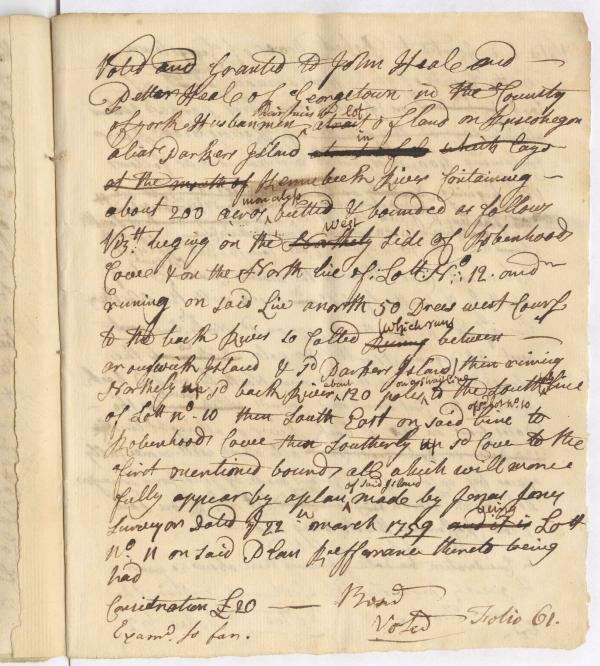 Voted and Granted to John Heal and
Petter Heal of Georgetown in the County
of york Husbanmen their heirs a tract lot of land on Ruscohegon
alias Parkers Island in which lays
at the mouth of Kennebeck River Containing
about 200 acres more or less butted & bounded as follows
Viz:tt beging on the Northely west side of Robenhoods
Cove & on the North line of Lott N:o 12. and
runing on said Line a north 50 Drees west Cours
to the back River so Called Runing (which runs between
arouswick Island & sd Parkers Island) then runing
Northely up sd back River about 120 poles to the South west line
of Lott no. 10 then South East on said line of sd Lot no 10 to
Robenhoods Cove then Southerly up sd Cove to the
first mentioned bounds all which will more
fully appear by a plan of said Island made by Jonas Jones
Surveyor Dated ye 22 in march 1759 and it is being Lott
No. 11 on said Plan Refferrance thereto being
had
Consideration £20 — Bond
Voted Folio 61.
Examd. so far.